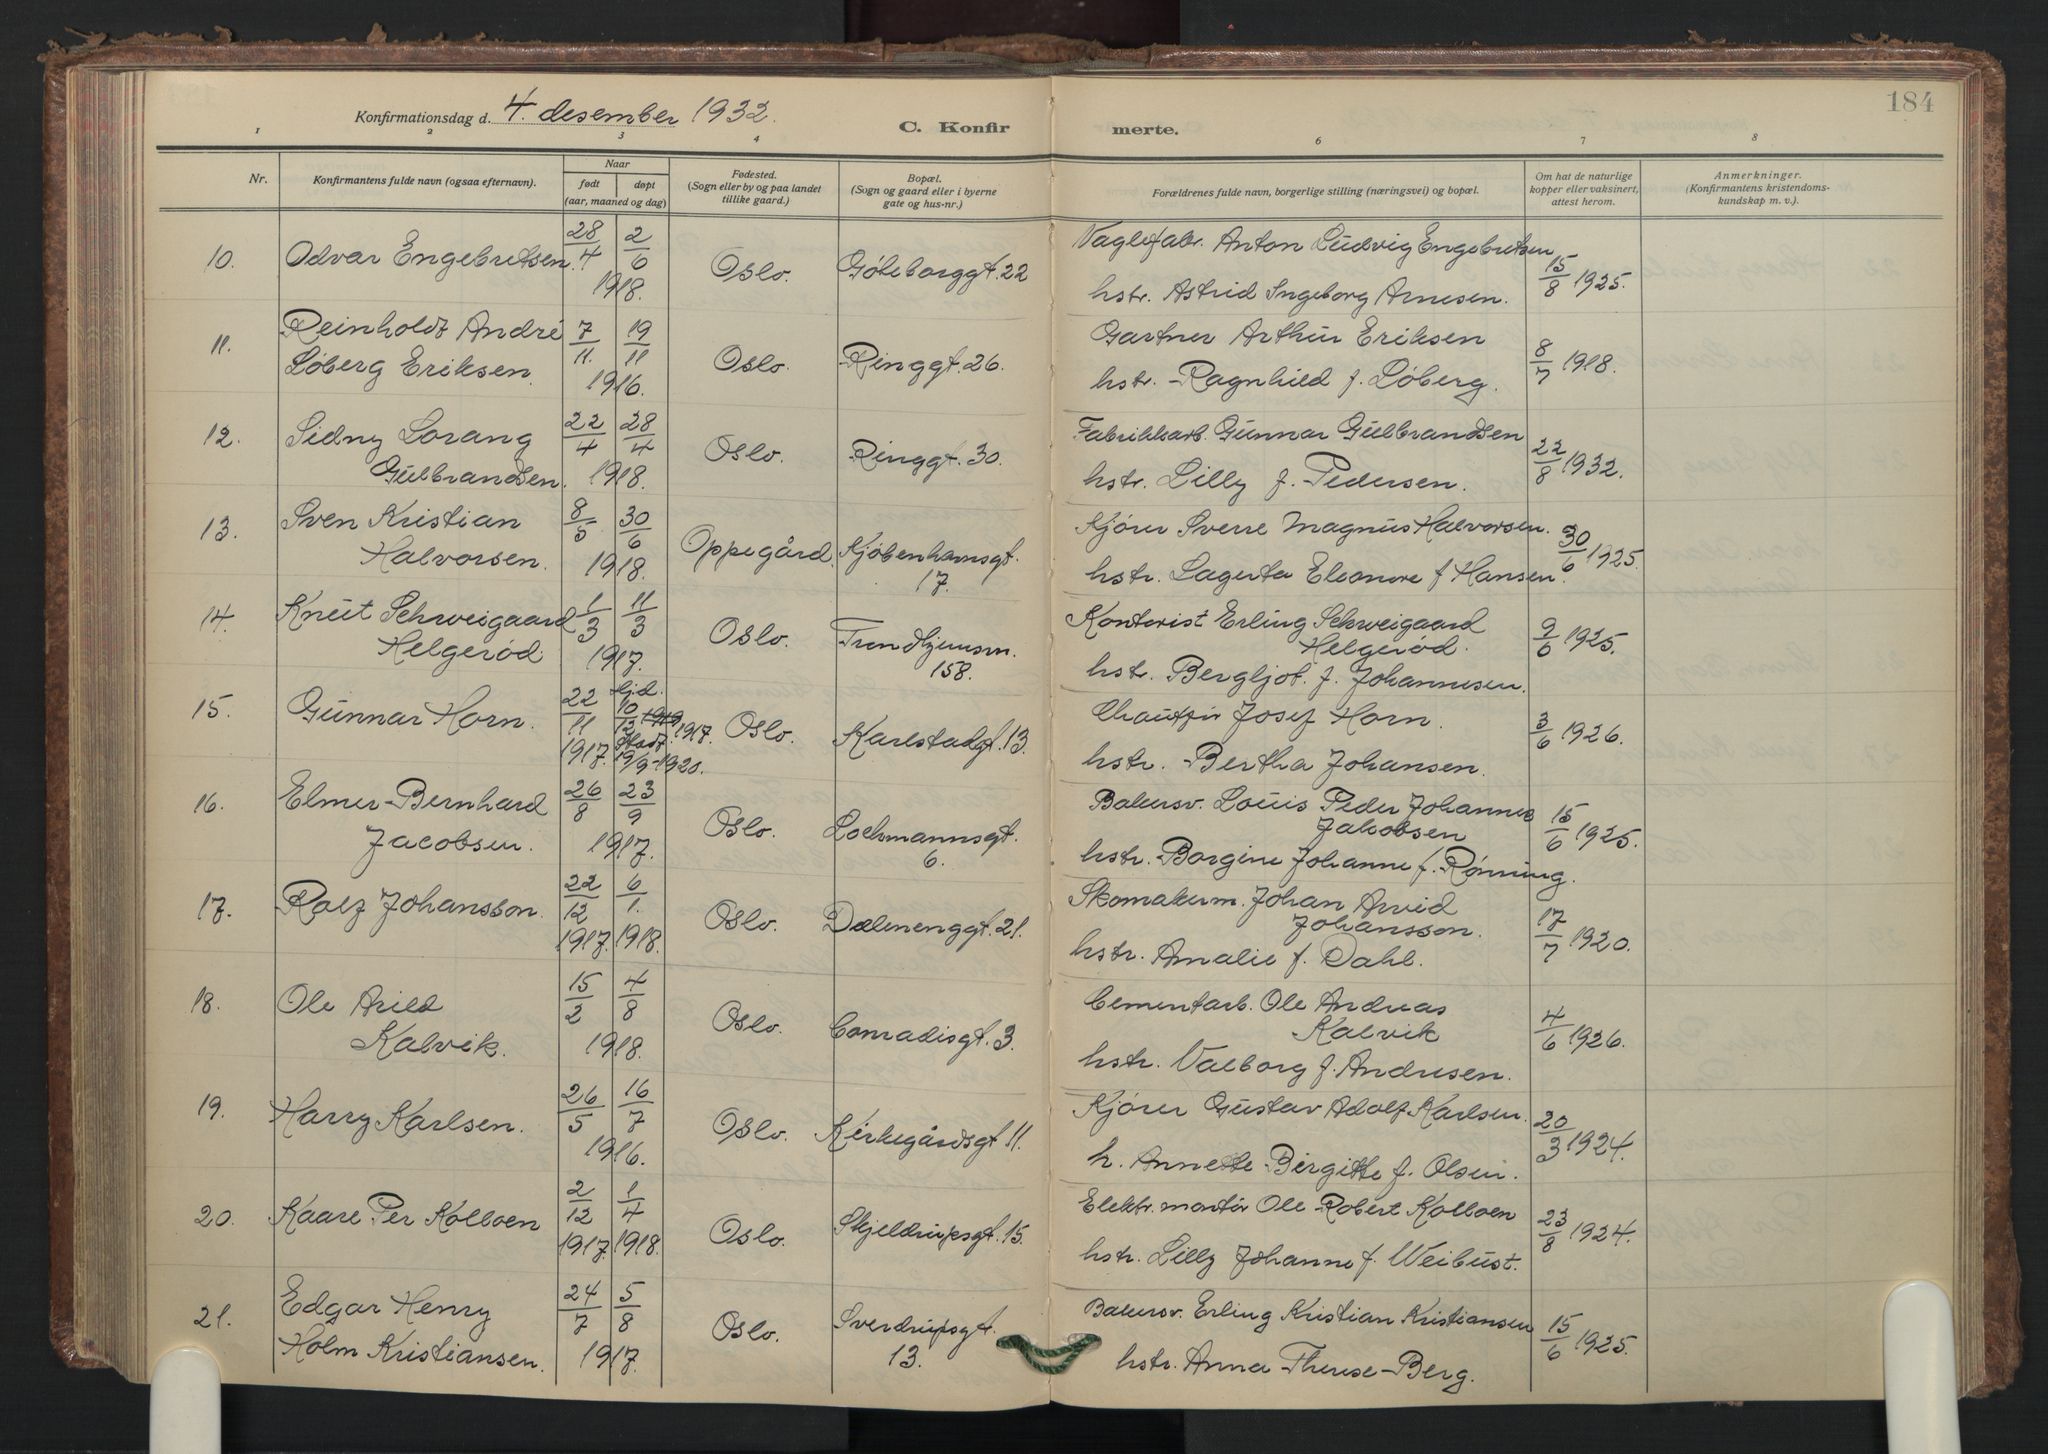 184
Konfirmationsdag d. 4. desember 1932.
C. Konfirmerte.
1 2 3 4 6 7 8
Nr.
Konfirmantens fulde navn (ogsaa efternavn).
Naar
født døpt
(aar, maaned og dag)
Fødested.
(Sogn eller by og paa landet
tillike gaard.)
Bopæl.
(Sogn og gaard eller i byerne
gate og hus-nr.)
Forældrenes fulde navn, borgerlige stilling (næringsvei) og bopæl.
Om hat de naturlige
kopper eller vaksinert,
attest herom.
Anmerkninger.
(Konfirmantens kristendoms-
kundskap m. v.).
10. Odvar Engebretsen. 28/4 2/6 1918. Oslo. Göteborggt. 22
Anton Ludvig Engebretsen
hstr. Astrid Ingeborg Arnesen. 15/8 1925.
11. Reinholdt André
Løberg Eriksen. 7/11 19/11 1916. Oslo. Ringgt. 26.
Gartner Arthur Eriksen
hstr. Ragnhild f. Løberg. 8/7 1918.
12. Sidny Lorang
Gulbrandsen. 22/4 28/4 1918. Oslo. Ringgt. 30.
Fabrikkarb. Gunnar Gulbrandsen
hstr. Lilly f. Pedersen. 22/8 1932.
13. Sven Kristian
Halvorsen. 8/5 30/6 1918. Oppegård. Kjøbenhavnsgt.
17.
Kjører Sverre Magnus Halvorsen.
hstr. Lagerta Eleonore f Hansen. 30/6 1925.
14. Knut Schweigaard
Helgerød. 1/3 11/3 1917. Oslo. Trondhjemsvn.
158.
Kontorist Erling Schweigaard
Helgerød.
hstr. Bergljot. f. Johannesen. 9/6 1925.
15. Gunnar Horn. 22/11 1917. Hjd. 10/12 1917. Stadf. 19/9-1920. Oslo. Karlstadgt. 13.
Chauffør Josef Horn.
hstr. Bertha Johansen. 3/6 1926.
16. Elmer Bernhard
Jacobsen. 26/8 23/9 1917. Oslo. Lochmannsgt.
6.
Bakersv. Louis Peder Johannes
Jakobsen
hstr. Borgine Johanne f. Rønning. 15/6 1925.
17. Rolf Johansson. 22/12 1917. 6/1. 1918. Oslo. Dælenenggt. 21.
Skomakerm. Johan Arvid
Johansson.
hstr. Amalie f. Dahl. 17/7 1920.
18. Ole Arild
Kalvik. 15/2 4/8 1918. Oslo. Conradisgt. 3.
Cementarb. Ole Andreas
Kalvik
hstr. Valborg f. Andresen. 4/6 1926.
19. Harry Karlsen. 26/5 16/7 1916. Oslo. Kirkegårdsgt. 11.
Kjører Gustav Adolf Karlsen.
h. Annette Birgitte f. Olsen. 20/3 1924.
20. Kaare Per Kolloen 2/12 1917. 1/4 1918. Oslo. Skjeldrupsgt. 15.
Elektr. montør Ole Robert Kolloen
hstr. Lilly Johanne f. Weibust. 23/8 1924.
21. Edgar Henry
Holm Kristiansen. 24/7 5/8 1917. Oslo. Sverdrupsgt.
13.
Bakersv. Erling Kristian Kristiansen
hstr. Anna Therese Berg. 15/6 1925.